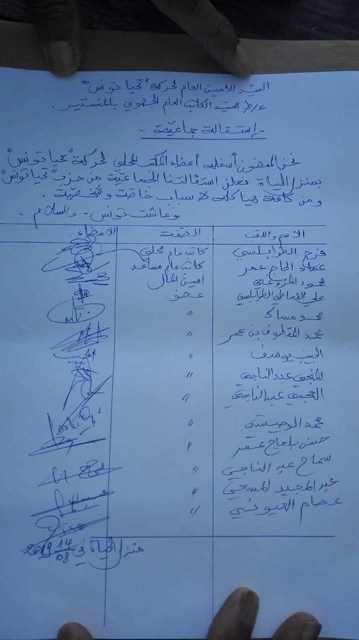 السيد الأمين العام لحركة "تحيا تونس"
ع/ط السيد الكاتب العام الجهوي بالمنستير
- إستقالة جماعية -
نحن الممضون أسفله أعضاء المكتب المحلي لحركة "تحيا تونس"
بمنزل الحياة نعلن استقالتنا الجماعية من حزب "تحيا تونس"
ومن كافة هياكله لأسباب خاصة وشخصية.
وعاشت تونس - والسلام.
الاسم واللقب الصفة الامضاء
فرج الطرابلسي كاتب عام محلي
عماد الحاج عمر كاتب عام مساعد
محمود أمين المال
علي الطرابلسي عضو
محمد مساك "
محمد بن عمر "
الحبيب يوسف "
المنجي عبد الناجي "
العجمي عبد الناجي "
محمد "
حسن بالحاج عمر "
سماح عبد الناجي "
عبد المجيد "
عصام العيوني "
منزل الحياة في 14 08 2019